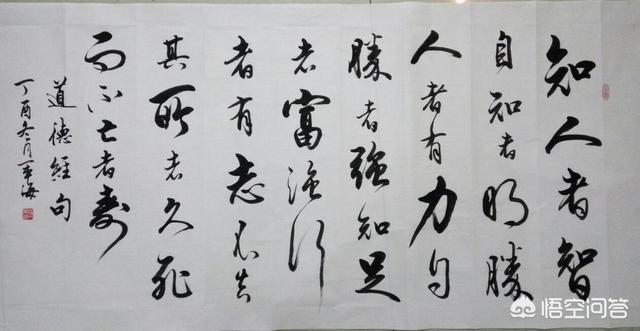 知人者智
自知者明勝
人者有力自
勝者強知足
者富強行
者有志不失
其所者久死
而不亡者壽
道德經句
丁酉冬月海
悟空问答